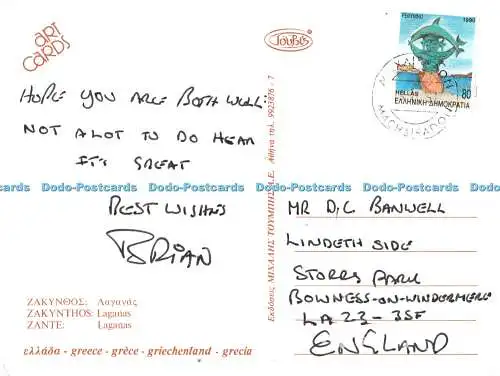 ART
CARDS
HOPE YOU ARE BOTH WELL:
NOT A LOT TO DO HEAR
IT'S GREAT
BEST WISHES
BRIAN
ΖΑΚΥΝΘΟΣ: Λαγανάς
ZAKYNTHOS: Laganas
ZANTE: Laganas
ελλάδα - greece - grèce - griechenland - grecia
Εκδόσεις ΜΙΧΑΛΗΣ ΤΟΥΜΠΗΣ Α.Ε. Αθήνα τηλ. 9923876 - 7
TOUBIS
1990
HELLAS 80
ΕΛΛΗΝΙΚΗ ΔΗΜΟΚΡΑΤΙΑ
MR D.C BANWELL
LINDETH SIDE
STORRS PARK
BOWNESS-ON-WINDERMERE
LA23-3SF
ENGLAND
Dodo-Postcards Dodo-Postcards Dodo-Postcards Dodo-Postcards Dodo-Postcards